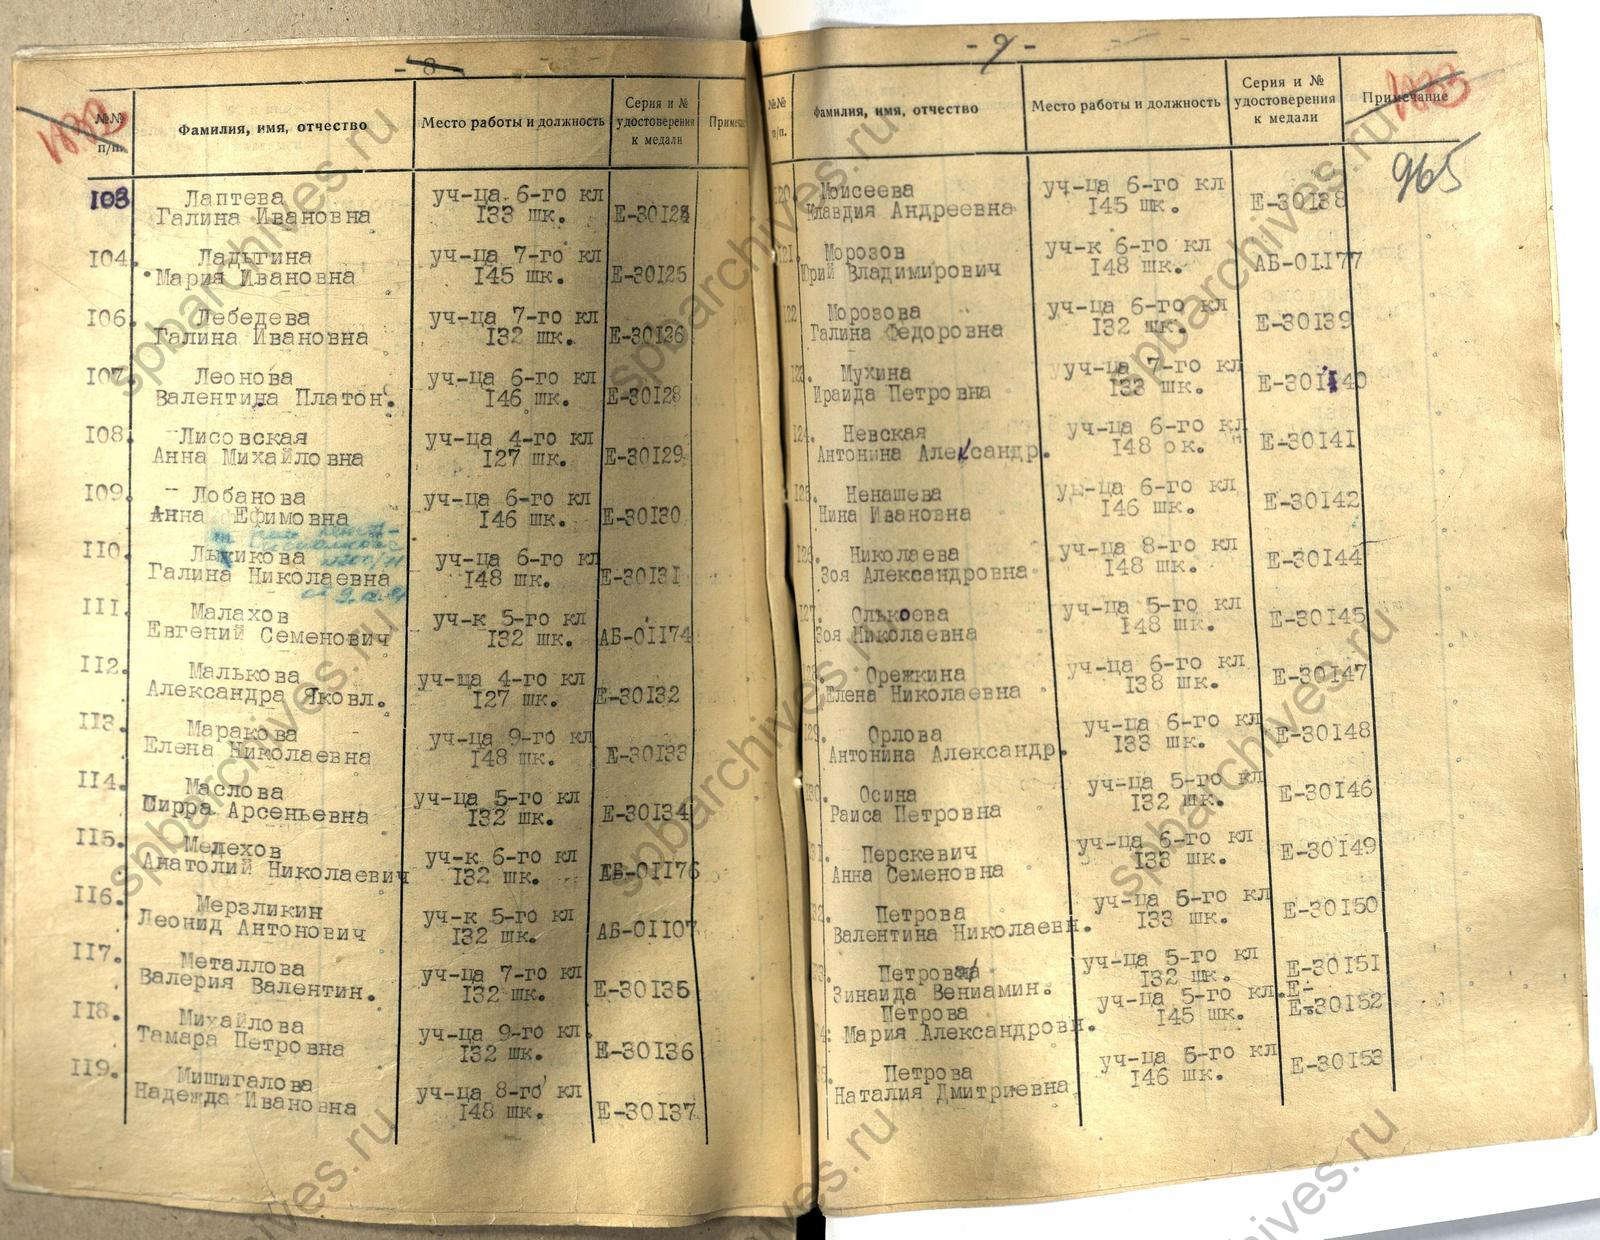 - 8 -
№№ п/п.
Фамилия, имя, отчество
Место работы и должность
Серия и № удостоверения к медали
103 Лаптева уч-ца 6-го кл
Галина Ивановна 133 шк. Е-30124
104. Ладыгина уч-ца 7-го кл
Мария Ивановна 145 шк. Е-30125
106. Лебедева уч-ца 7-го кл
Галина Ивановна 132 шк. Е-30126
107. Леонова уч-ца 6-го кл
Валентина Платон. 146 шк. Е-30128
108. Лисовская уч-ца 4-го кл
Анна Михайловна 127 шк. Е-30129
109. Лобанова уч-ца 6-го кл
Анна Ефимовна 146 шк. Е-30130
110. Лыжикова уч-ца 6-го кл
Галина Николаевна 148 шк. Е-30131
111. Малахов уч-к 5-го кл
Евгений Семенович 132 шк. АБ-01174
112. Малькова уч-ца 4-го кл
Александра Яковл. 127 шк. Е-30132
113. Маракова уч-ца 9-го кл
Елена Николаевна 148 шк. Е-30133
114. Маслова уч-ца 5-го кл
Арсеньевна 132 шк. Е-30134
115. Мелехов уч-к 6-го кл
Анатолий Николаевич 132 шк. АБ-01176
116. Мерзликин уч-к 5-го кл
Леонид Антонович 132 шк. АБ-01107
117. Металлова уч-ца 7-го кл
Валерия Валентин. 132 шк. Е-30135
118. Михайлова уч-ца 9-го кл.
Тамара Петровна 132 шк. Е-30136
119. Мишигалова уч-ца 8-го кл
Надежда Ивановна 148 шк. Е-30137
- 9 -
№№ п/п.
Фамилия, имя, отчество
Место работы и должность
Серия и № удостоверения к медали
Примечание
965
Моисеева уч-ца 6-го кл
Клавдия Андреевна 145 шк. Е-30138
Морозов уч-к 6-го кл
Юрий Владимирович 148 шк. АБ-01177
Морозова уч-ца 6-го кл
Галина Федоровна 132 шк. Е-30139
Мухина уч-ца 7-го кл
Ираида Петровна 133 шк. Е-30140
Невская уч-ца 6-го кл
Антонина Александр. 148 ок. Е-30141
Ненашева уч-ца 6-го кл
Нина Ивановна 146 шк. Е-30142
Николаева уч-ца 8-го кл
Зоя Александровна 148 шк. Е-30144
Олькоева уч-ца 5-го кл
Зоя Николаевна 148 шк. Е-30145
Орежкина уч-ца 6-го кл
Елена Николаевна 138 шк. Е-30147
Орлова уч-ца 6-го кл
Антонина Александр. 133 шк. Е-30148
Осина уч-ца 5-го кл
Раиса Петровна 132 шк. Е-30146
Перскевич уч-ца 6-го кл
Анна Семеновна 133 шк. Е-30149
Петрова уч-ца 5-го кл
Валентина Николаевн. 133 шк. Е-30150
Петрова уч-ца 5-го кл
Зинаида Вениамин. 132 шк. Е-30151
Петрова уч-ца 5-го кл.
Мария Александровн. 145 шк. Е-30152
Петрова уч-ца 5-го кл
Наталия Дмитриевна 146 шк. Е-30153
spbarchives.ru